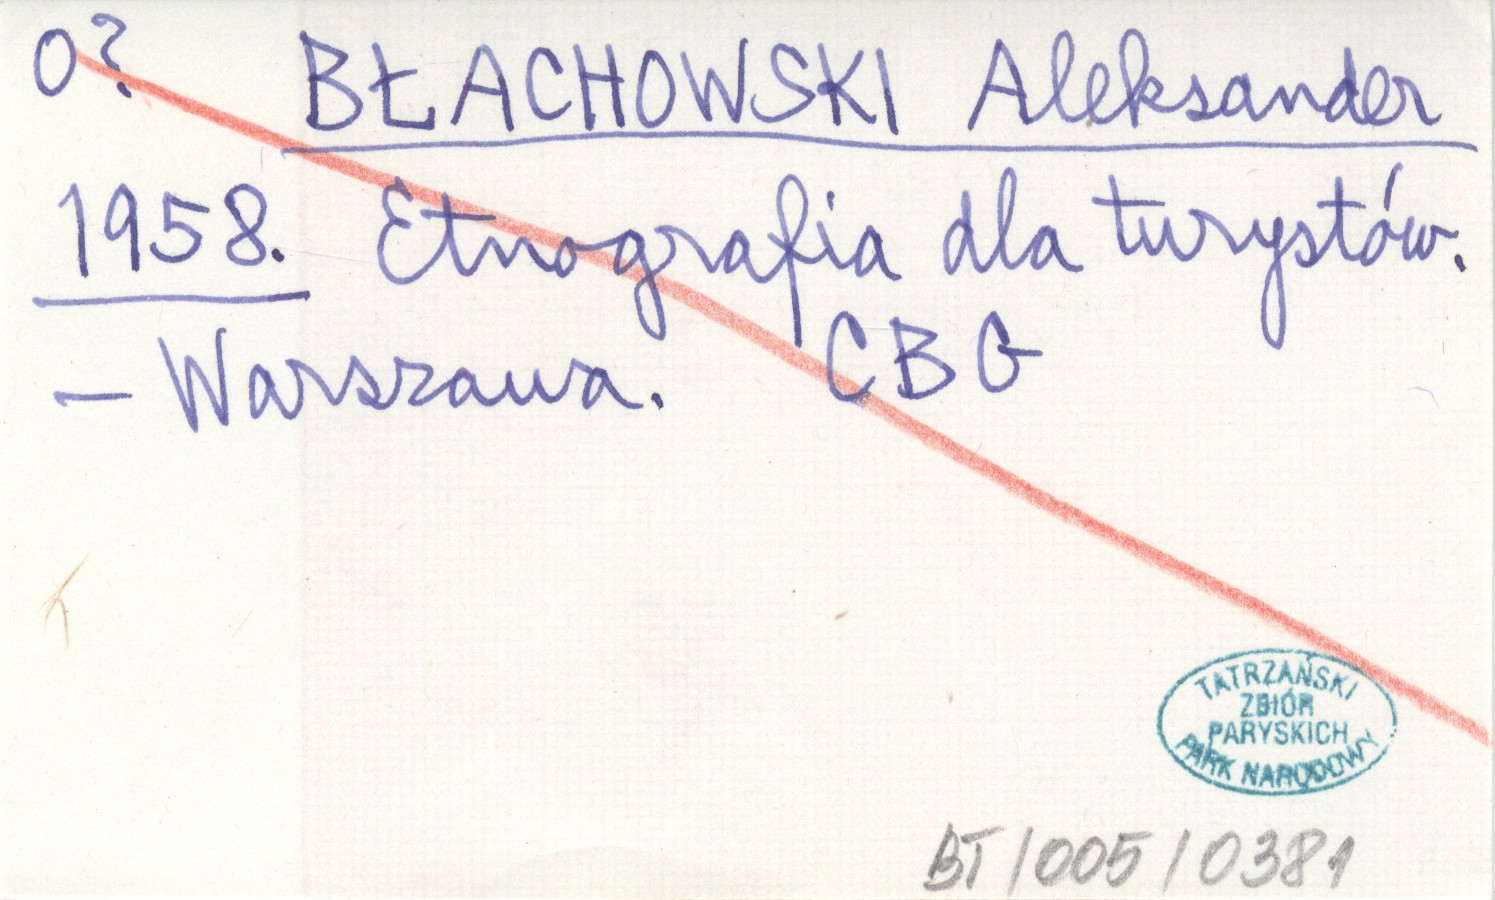 O? BŁACHOWSKI Aleksander
1958. Etnografia dla turystów.
– Warszawa. CBG
TATRZAŃSKI
ZBIÓR
PARYSKICH
PARK NARODOWY
BT/005/0381